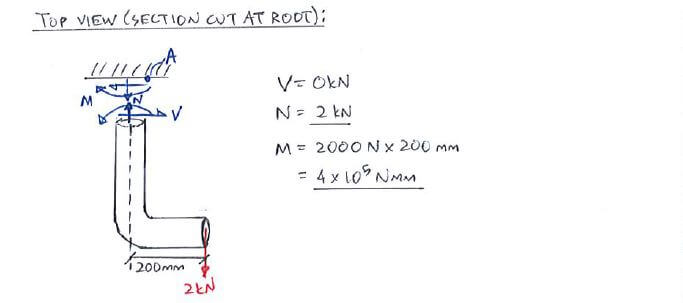 TOP VIEW (SECTION CUT AT ROOT):
A
M
N
V
V = 0kN
N = 2 kN
M = 2000 N x 200 mm
= 4 x 10⁵ Nmm
200mm
2kN